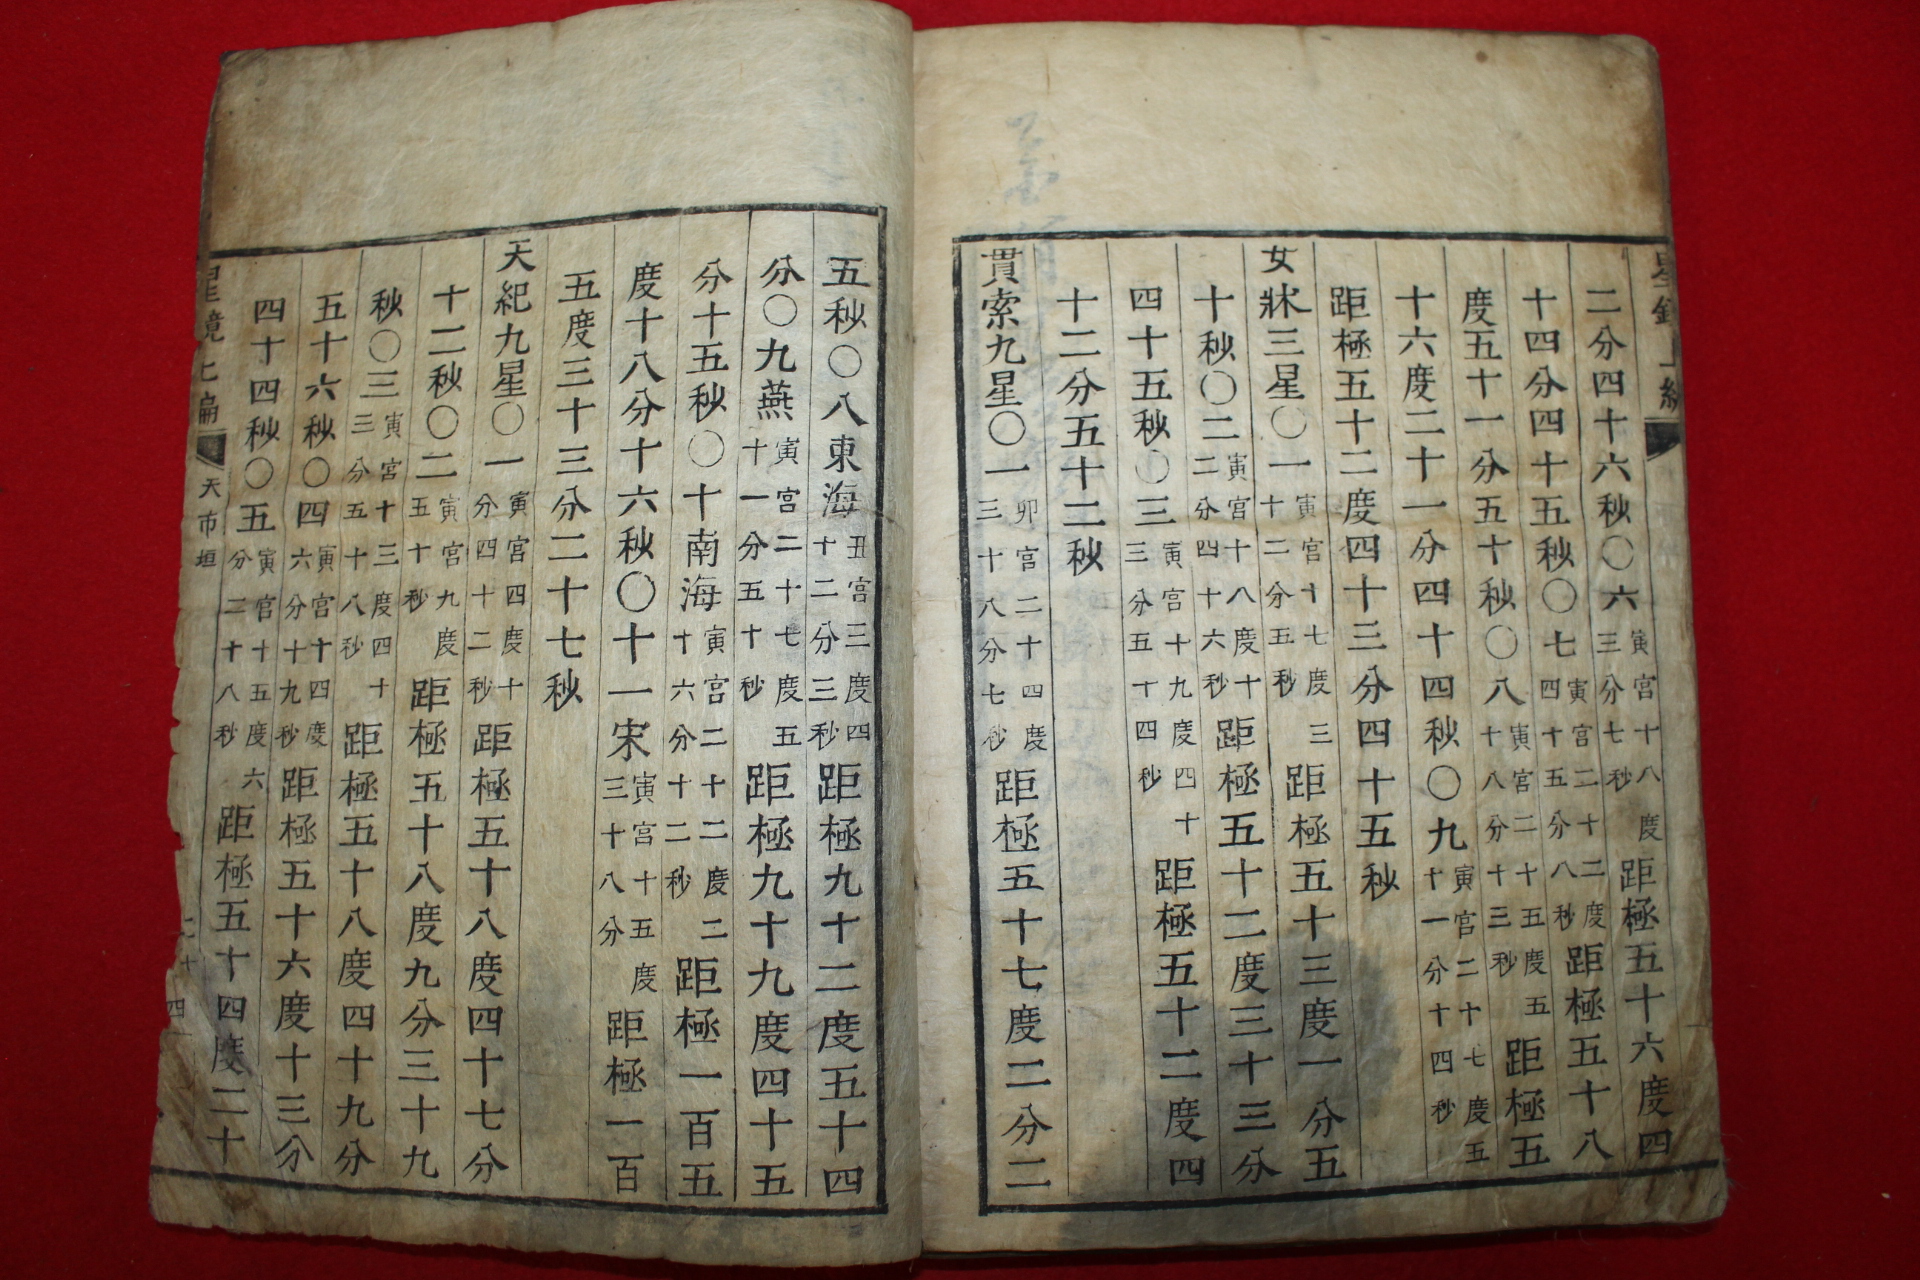 星鏡上編
二分四十六秒〇六寅宮十八度三分七秒距極五十六度四
十四分四十五秒〇七寅宮二十二度四十五分八秒距極五十八
度五十一分五十秒〇八寅宮二十五度五十八分十三秒距極五
十六度二十一分四十四秒〇九寅宮二十七度五十一分十四秒
距極五十二度四十三分四十五秒
女牀三星〇一寅宮十七度三十二分五秒距極五十三度一分五
十秒〇二寅宮十八度十二分四十六秒距極五十二度三十三分
四十五秒〇三寅宮十九度四十三分五十四秒距極五十二度四
十二分五十二秒
貫索九星〇一卯宮二十四度三十八分七秒距極五十七度二分二
五秒〇八東海丑宮三度四十二分三秒距極九十二度五十四
分〇九燕寅宮二十七度五十一分五十秒距極九十九度四十五
分十五秒〇十南海寅宮二十二度二十六分十二秒距極一百五
度十八分十六秒〇十一宋寅宮十五度三十八分距極一百
五度三十三分二十七秒
天紀九星〇一寅宮四度十分四十二秒距極五十八度四十七分
十二秒〇二寅宮九度五十秒距極五十八度九分三十九
秒〇三寅宮十三度四十三分五十八秒距極五十八度四十九分
五十六秒〇四寅宮十四度六分十九秒距極五十六度十三分
四十四秒〇五寅宮十五度六分二十八秒距極五十四度二十
星鏡上編 天市垣 二十四